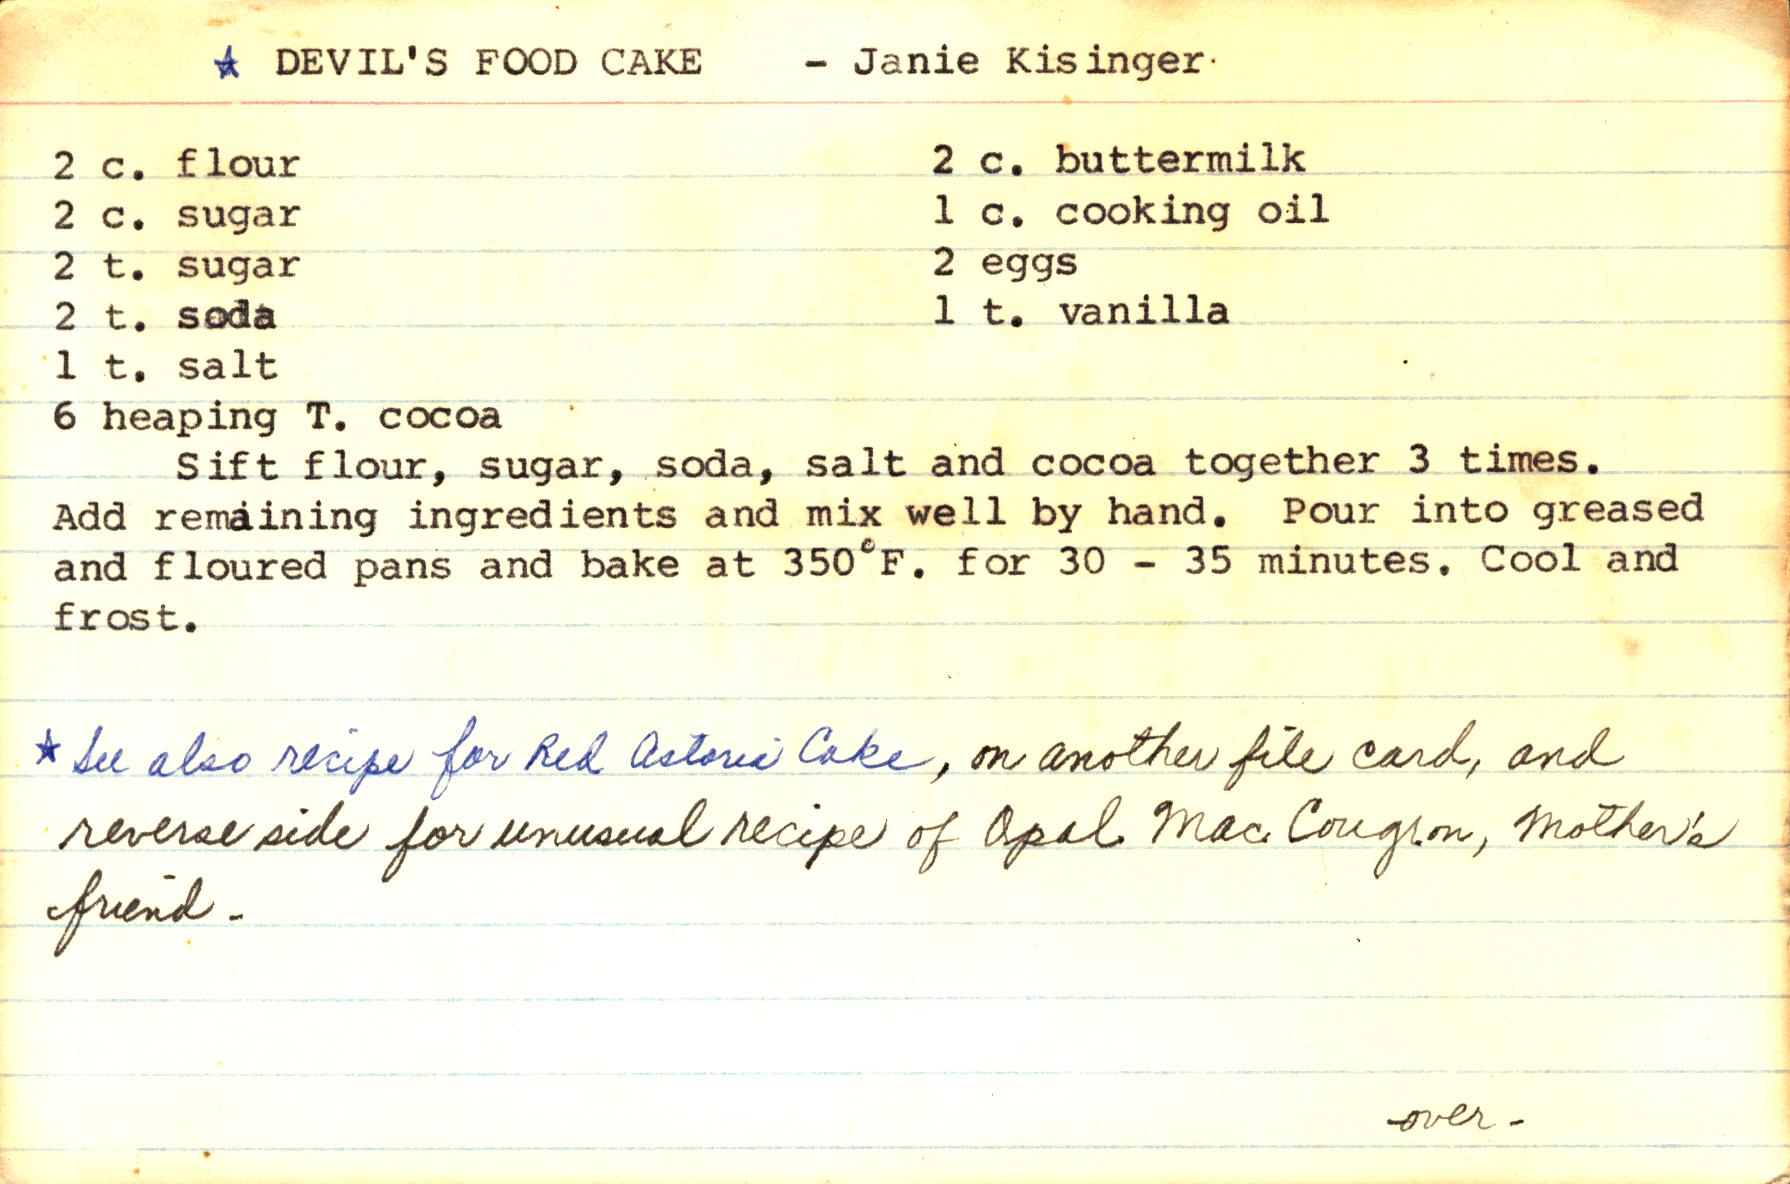 ★ DEVIL'S FOOD CAKE - Janie Kisinger
2 c. flour
2 c. sugar
2 t. sugar
2 t. soda
1 t. salt
6 heaping T. cocoa
2 c. buttermilk
1 c. cooking oil
2 eggs
1 t. vanilla
Sift flour, sugar, soda, salt and cocoa together 3 times.
Add remaining ingredients and mix well by hand. Pour into greased
and floured pans and bake at 350°F. for 30 - 35 minutes. Cool and
frost.
★ See also recipe for Red Astoria Cake, on another file card, and
reverse side for unusual recipe of Opal Mac, Mother's
friend -
-over-